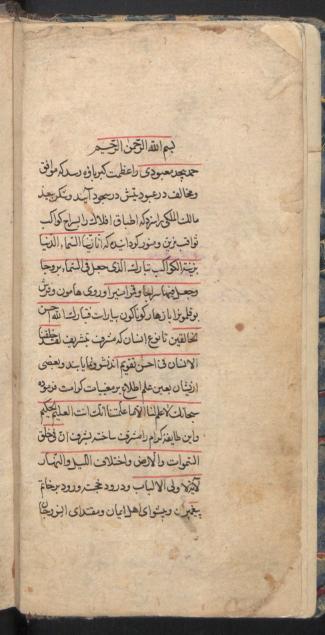 بسم الله الرّحمن الرّحیم
حمد بیحد معبودی را عظمت کبریاؤه رسد که موافق
و مخالف در عبودیتش در سجود آیند و شکر بیعد
مالک الملکی را سزد که اطباق افلاک را بسراج کواکب
ثواقب مزین و منور کردانیده که انا زینا السّماء الدنیا
بزینة الکواکب تبارک الذی جعل فی السّماء بروجا
و جعل فیها سراجا و قمرا منیرا و روی هامون و فرش
بوقلمون را بازهار کوناکون بیاراست فتبارک الله احسن
الخالقین تا نوع انسان که مشرف بتشریف لقد خلقنا
الانسان فی احسن تقویم اند نشو و نما یابند و بعضی
از ایشان بعین علم اطلاع بر مغیبات کرامت فرموده
سبحانک لا علم لنا الا ما علمتنا انک انت العلیم الحکیم
و این طایفه کرام را مشرف ساخته بشرف ان فی خلق
السّموات والارض واختلاف اللیل والنهار
لآیات لاولی الالباب و درود محجت ورود بر خاتم
پیغمبران و پیشوای اهل ایمان و مقتدای انس و جان